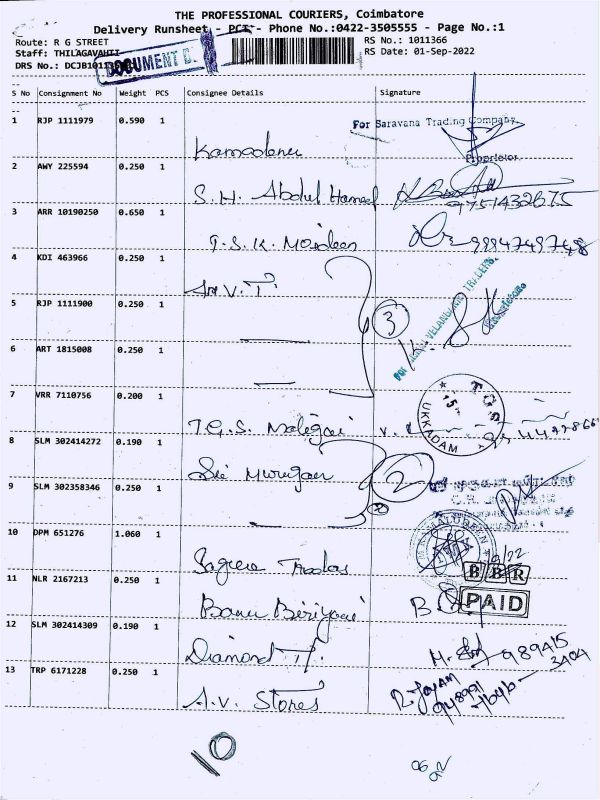 THE PROFESSIONAL COURIERS, Coimbatore
Delivery Runsheet - PCT - Phone No.:0422-3505555 - Page No.:1
Route: R G STREET
RS No.: 1011366
Staff: THILAGAVAHII
RS Date: 01-Sep-2022
DRS No.:
DOCUMENT
S No Consignment No Weight PCS Consignee Details Signature
1 RJP 1111979 0.590 1
For Saravana Trading Company
Proprietor
2 AWY 225594 0.250 1
S. H. Abdul Hameed
9751432675
3 ARR 10190250 0.650 1
T.S.K. Moideen
9994749748
4 KDI 463966 0.250 1
V. T.
5 RJP 1111900 0.250 1
3
6 ART 1815008 0.250 1
7 VRR 7110756 0.200 1
T.G.S. Maligai
TGS
UKKADAM
8 SLM 302414272 0.190 1
Sri Murugan
2
9 SLM 302358346 0.250 1
10 DPM 651276 1.060 1
Traders
BBR
11 NLR 2167213 0.250 1
Banu Biriyani
PAID
12 SLM 302414309 0.190 1
Diamond T.
989415
3404
13 TRP 6171228 0.250 1
A.V. Stores
R. Jayam
948991
7646
10